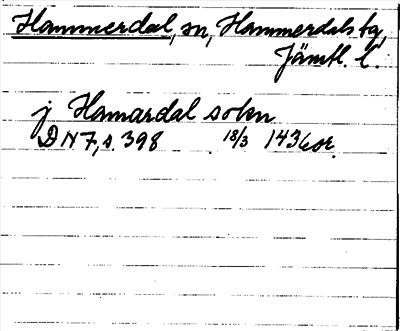 Hammerdal, sn, Hammerdals tg,
Jämtl. l.
j Hamardal sokn
DN 7, s. 398 18/3 1436 or.